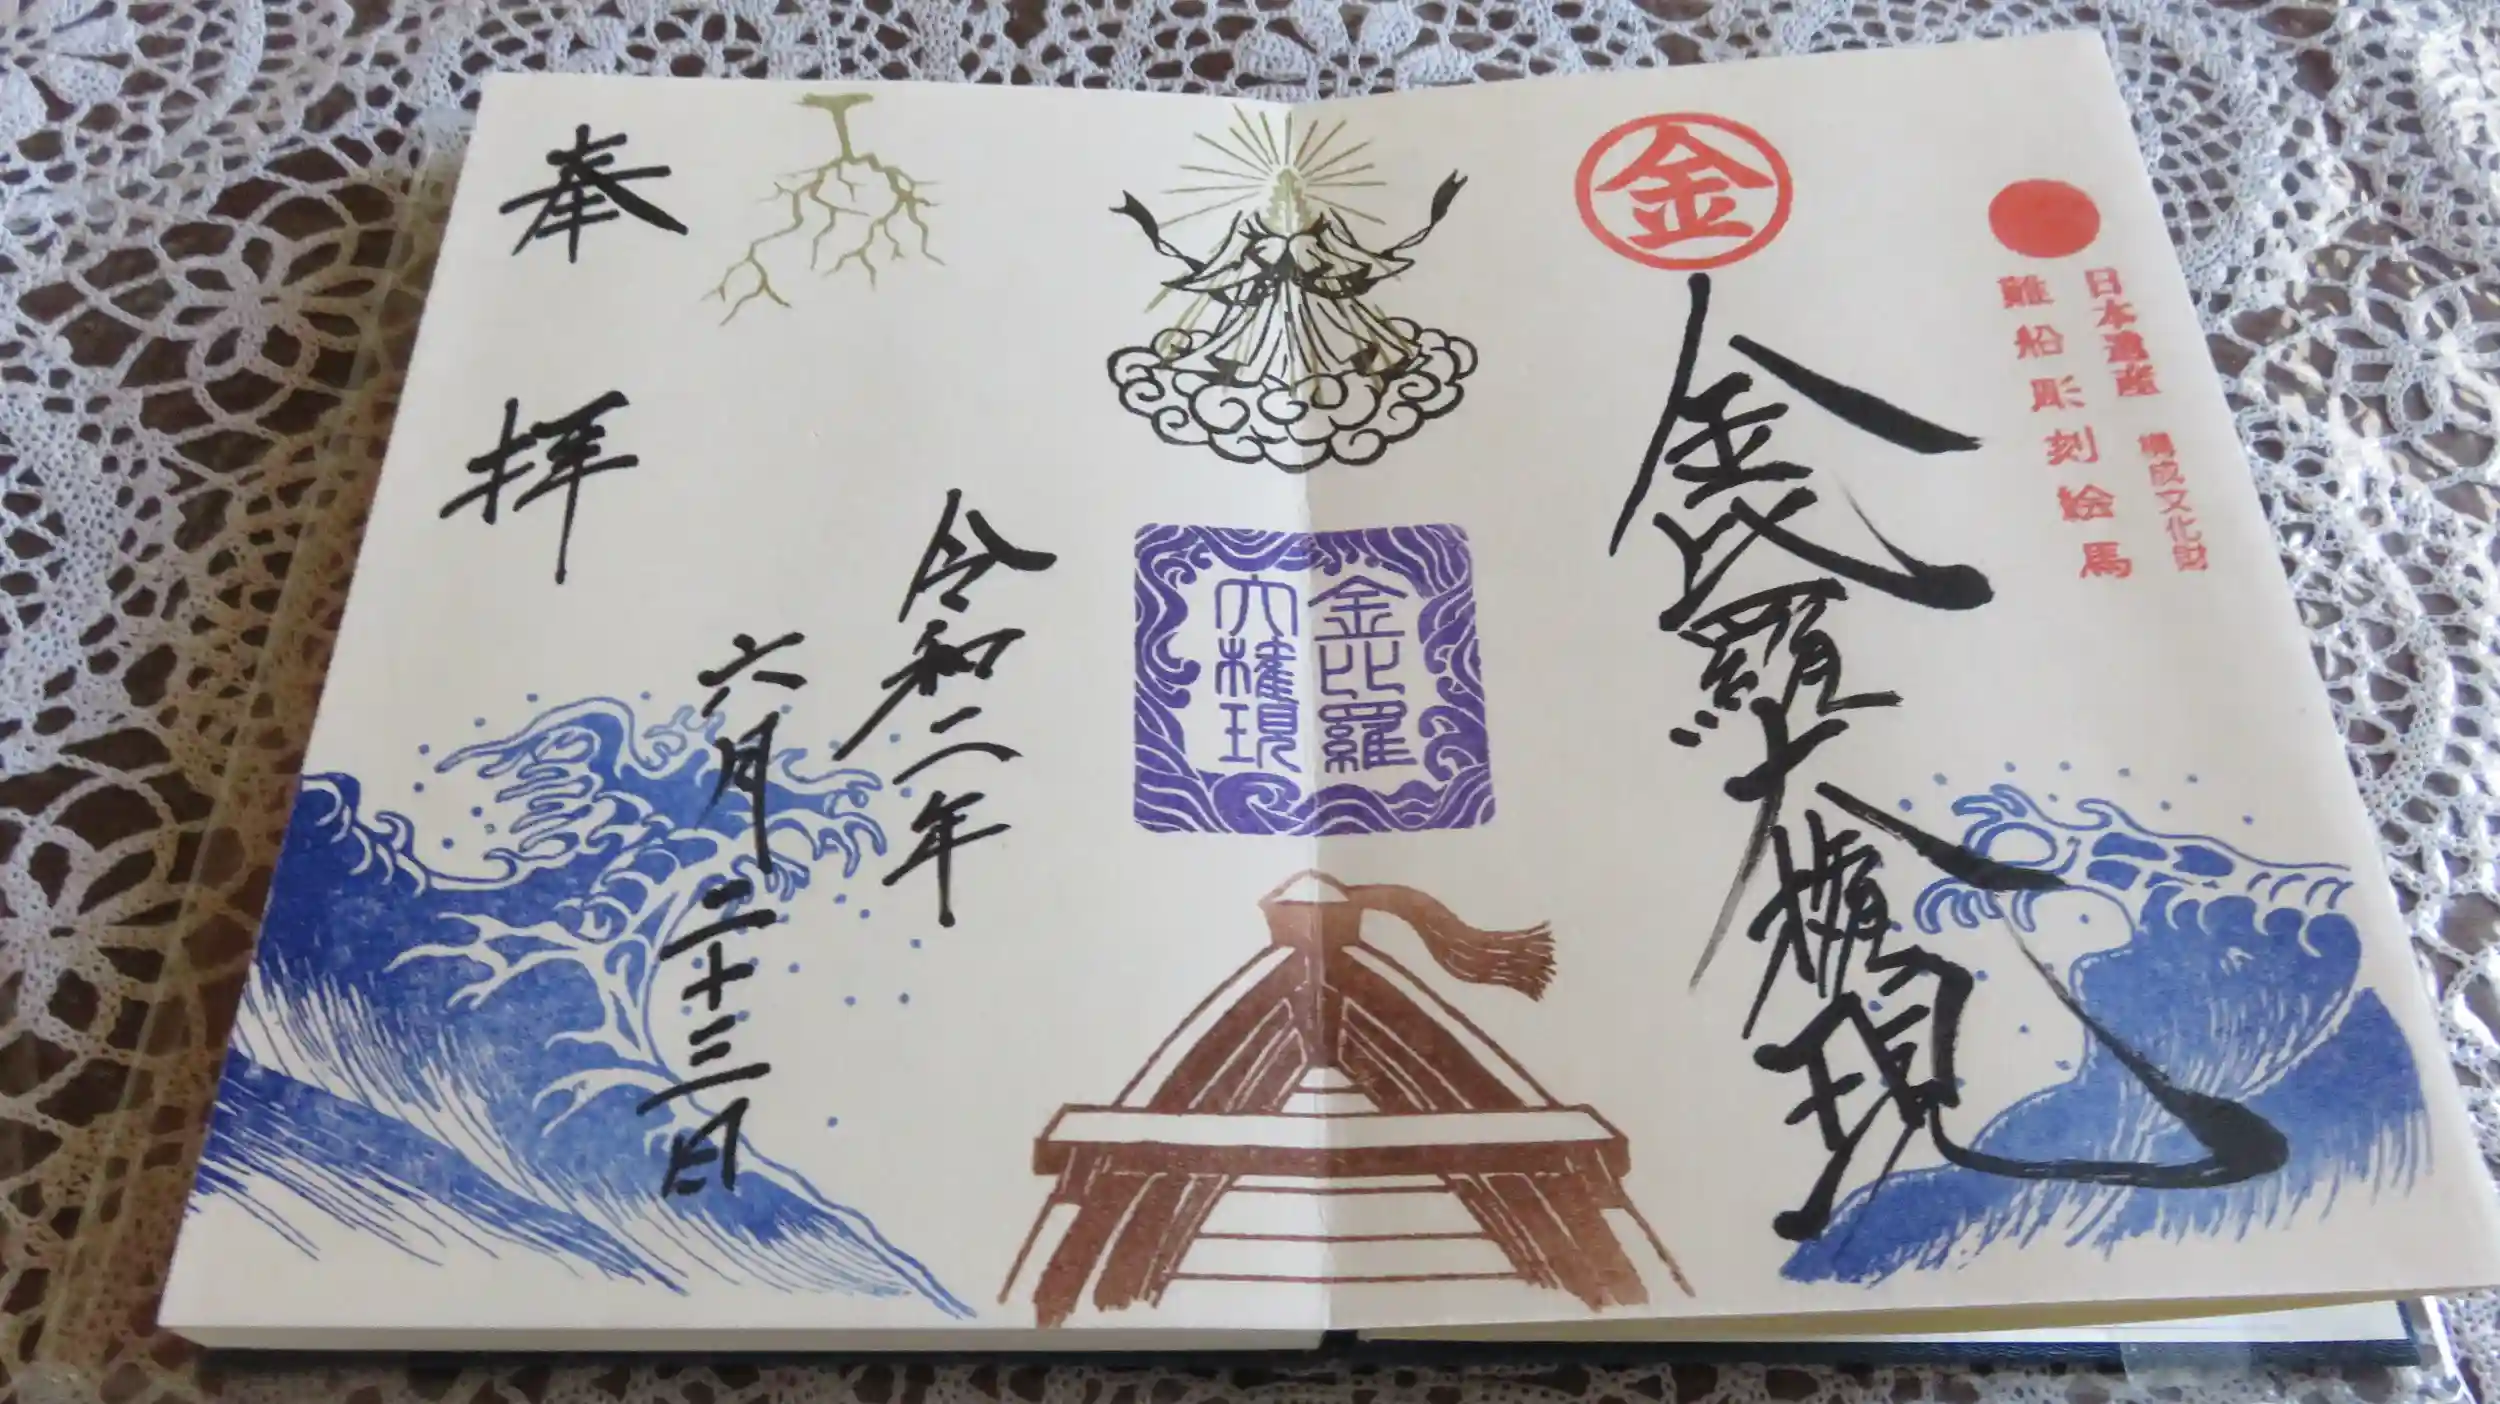 日本遺産 構成文化財
難船彫刻絵馬
金
金毘羅大権現
金比羅
大権現
令和二年
六月二十三日
奉拝